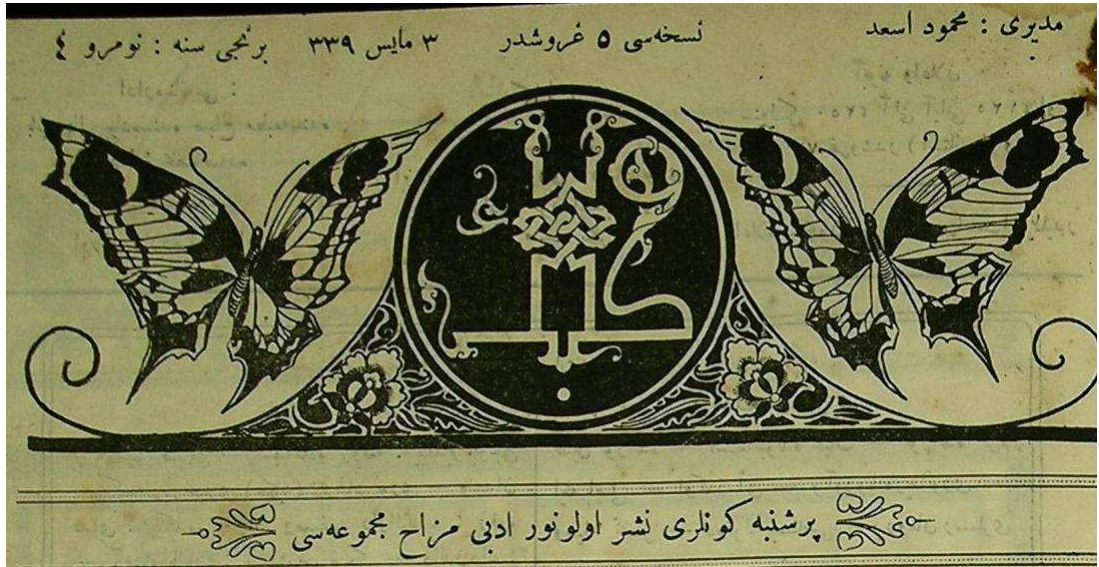 مدیری : محمود اسعد نسخه‌سی ۵ غروشدر ۳ مایس ۳۳۹ برنجی سنه : نومرو ٤
پرشنبه كونلری نشر اولونور ادبی مزاح مجموعه‌سی